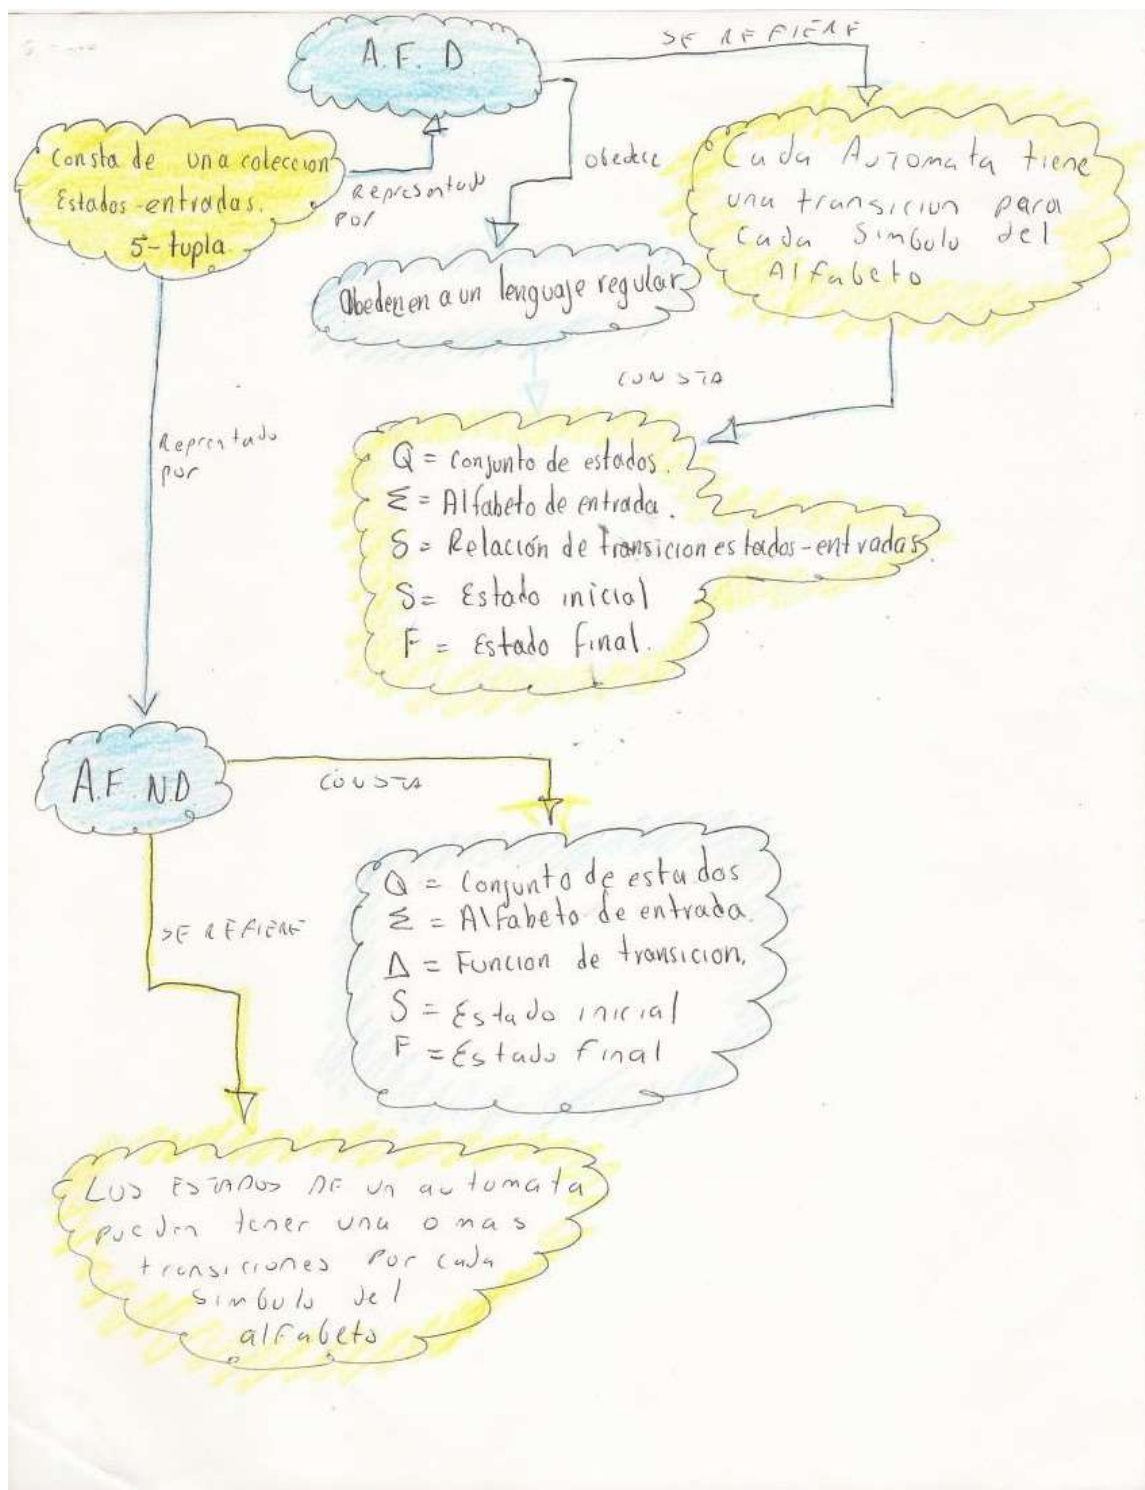 A.F.D
SE REFIERE
Consta de una coleccion
Estados-entradas.
5-tupla.
Representado
por
obedece
Cada Automata tiene
una transicion para
cada simbolo del
Alfabeto
Obedecen a un lenguaje regular
CONSTA
Reprentado
por
Q = Conjunto de estados.
Σ = Alfabeto de entrada.
δ = Relación de transicion estados-entradas
S = Estado inicial
F = Estado final.
A.F.N.D
CONSTA
SE REFIERE
Q = Conjunto de estados
Σ = Alfabeto de entrada.
Δ = Funcion de transicion.
S = Estado inicial
F = Estado final
LOS ESTADOS DE un automata
pueden tener una o mas
transiciones por cada
simbolo del
alfabeto